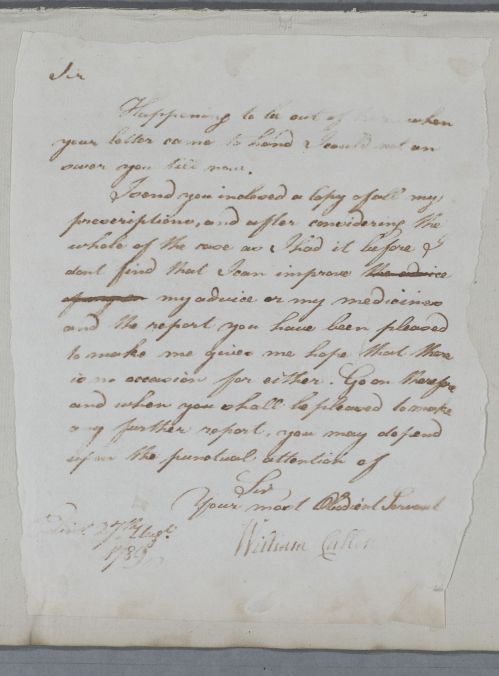 Sir
Happening to be out of town when
your letter came to hand I could not an
swer you till now.
I send you inclosed a Copy of all my
prescriptions, and after considering the
whole of the case as I had it before I
dont find that I can improve the advice
my advice or my medicines
and the report you have been pleased
to make me gives me hope that there
is no occasion for either. Go on therefore
and when you shall be pleased to make
any further report, you may depend
upon the punctual attention of
Sir
Your most Obedient Servant
William Cullen
Edinr. 27th. Augt.